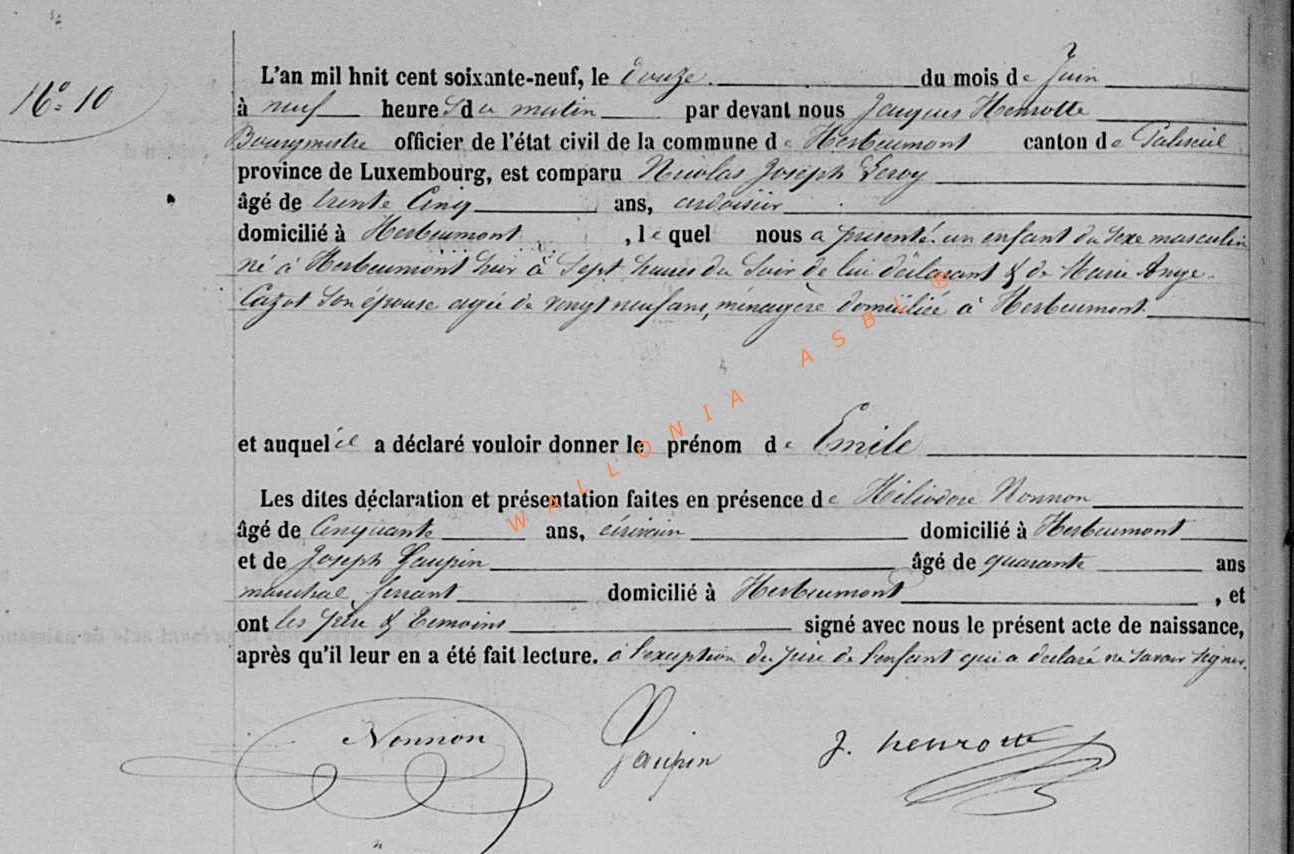 N° 10
L'an mil hnit cent soixante-neuf, le douze du mois de Juin
à neuf heures du matin par devant nous Jacques Henrotte
Bourgmestre officier de l'état civil de la commune de Herbeumont canton de Paliseul
province de Luxembourg, est comparu Nicolas Joseph Leroy
âgé de trente Cinq ans, ardoisier
domicilié à Herbeumont, lequel nous a présenté un enfant du sexe masculin
né à Herbeumont hier à Sept heures du Soir de lui déclarant & de Marie Ange
Cazot Son épouse agée de vingt neuf ans, ménagère domiciliée à Herbeumont
et auquel il a déclaré vouloir donner le prénom de Emile
Les dites déclaration et présentation faites en présence de Héliodore Nonnon
âgé de Cinquante ans, écrivain domicilié à Herbeumont
et de Joseph Gaupin âgé de quarante ans
maréchal ferrant domicilié à Herbeumont, et
ont les père & Temoins signé avec nous le présent acte de naissance,
après qu'il leur en a été fait lecture. à l'exception du père de l'enfant qui a déclaré ne savoir signer.
Nonnon Gaupin J. henrotte
WALLONIA ASBL ®